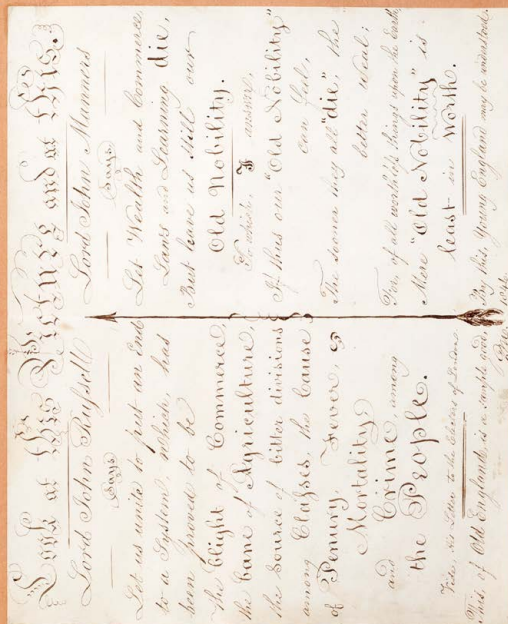 Look at this Picture and at this.
Lord John Russell
Says
Let us unite to put an end
to a System, which has
been proved to be
the blight of Commerce,
the bane of Agriculture,
the Source of bitter divisions
among Classes, the Cause
of Penury, Fever,
Mortality,
and Crime, among
the People.
Vide, his Letter to the Electors of London.
This, of Old England, is a sample good,
Lord John Manners
Says
Let Wealth and Commerce
Laws and Learning die,
But leave us still our
Old Nobility.
To which, I answer,
If thus our "Old Nobility"
can feel,
The sooner they all "die," the
better weal;
For, of all worthless things upon the Earth,
Mere "Old Nobility" is
least in worth.
By this, Young England may be understood.